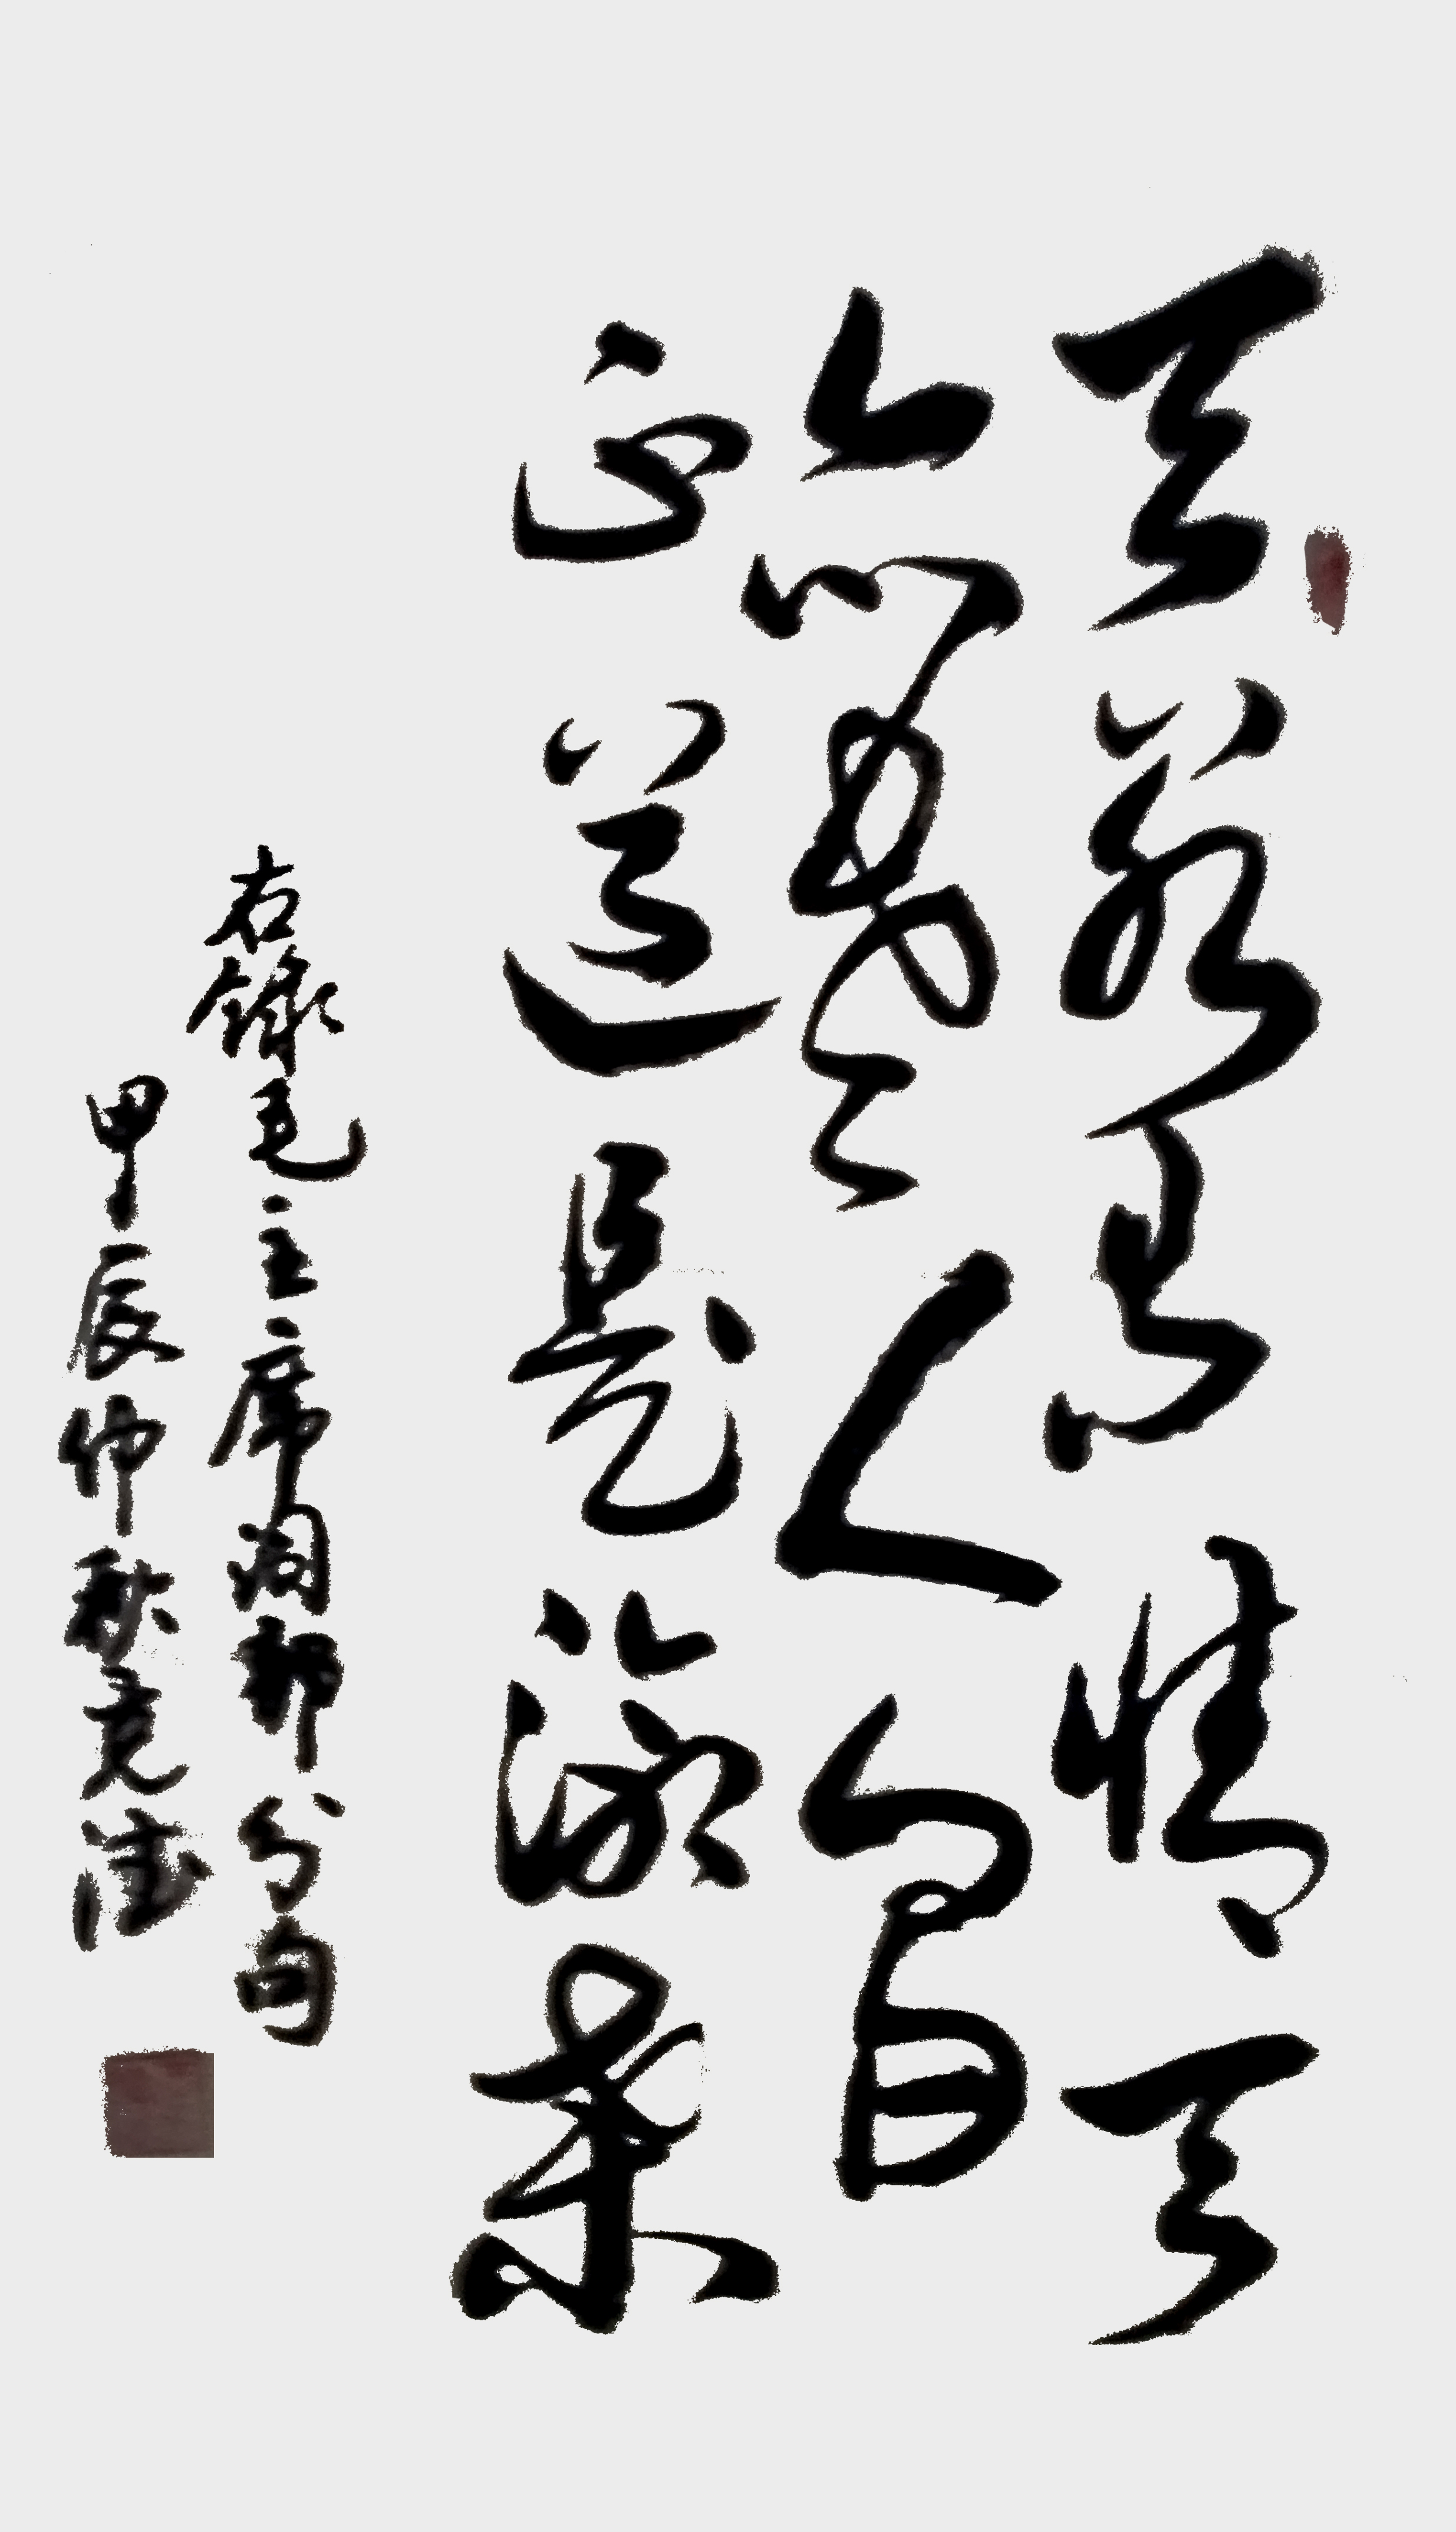 天若有情天
亦老人间
正道是沧桑
右录毛主席词部分句
甲辰仲秋克法